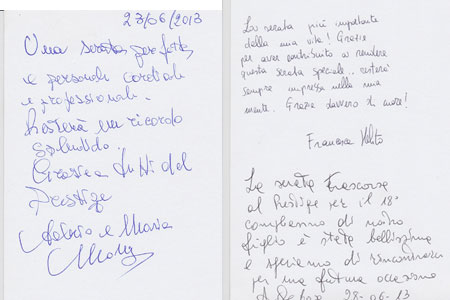 23/06/2013
Una serata perfetta,
e personale cordiale
e professionale.
Resterà un ricordo
splendido.
Grazie a tutti del
Prestige
Fabrizio e Maria
La serata più importante
della mia vita! Grazie
per aver contribuito a rendere
questa serata speciale.. resterà
sempre impressa nella mia
mente. Grazie davvero di cuore!
Francesca
La serata trascorsa
al Prestige per il 18°
compleanno di nostro
figlio è stata bellissima
e speriamo di rincontrarci
per una futura occasione
28-06-13